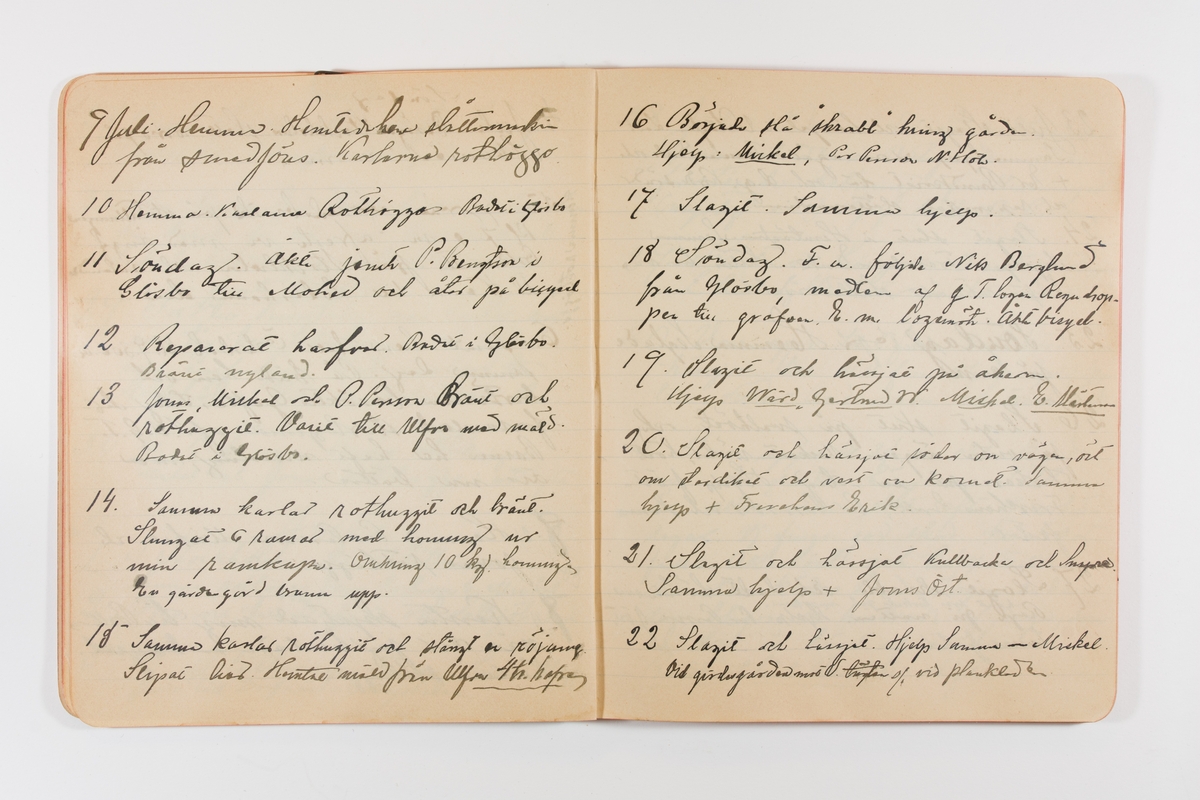 9 Juli. Hemma. Hemtade slåttermaskin
från smedjöns. Karlarna rothögga.
10 Hemma. Karlarna Rothögga Badat i Glösbo
11 Söndag. Åkte jemte P. Bengtson i
Glösbo till Mohed och åter på bicycel
12 Reparerat harfvar. Badat i Glösbo.
Bränt nyland.
13 Jonas, Mickel och P. Persson Bränt och
rothuggit. Varit till Ulfve med mäld.
Badat i Glösbo.
14. Samma karlar rothuggit och bränt.
Slungat 6 ramar med honung ur
min ramkupa. Omkring 10 kg. honung.
En gärdesgård brann upp.
15 Samma karlar rothuggit och stängt en röjning
Slipat liar. Hemtat mäld från Ulfve 4 tr. hafre
16 Började slå skrabb kring gården.
Hjelp: Mickel, Per Persson N.
17 Slagit. Samma hjelp.
18 Söndag. F. m. följde Nils Berglund
från Glösbo, medlem af G T. logen Regndrop-
pen till grafven. E. m. logemöte. Åkte bicycel.
19. Slagit och hässjat på åkern.
Hjelp Wärd, Gertrud W. Mickel. E. Mårtens
20. Slagit och hässjat söder om vägen, öst
om stordiket och vest om kornet. Samma
hjelp + Erik.
21. Slagit och hässjat Kullbacka och
Samma hjelp + Jonas Öst.
22 Slagit och hässjat. Hjelp Samma — Mickel.
Vid gärdesgården mot O. of. vid plankleden.